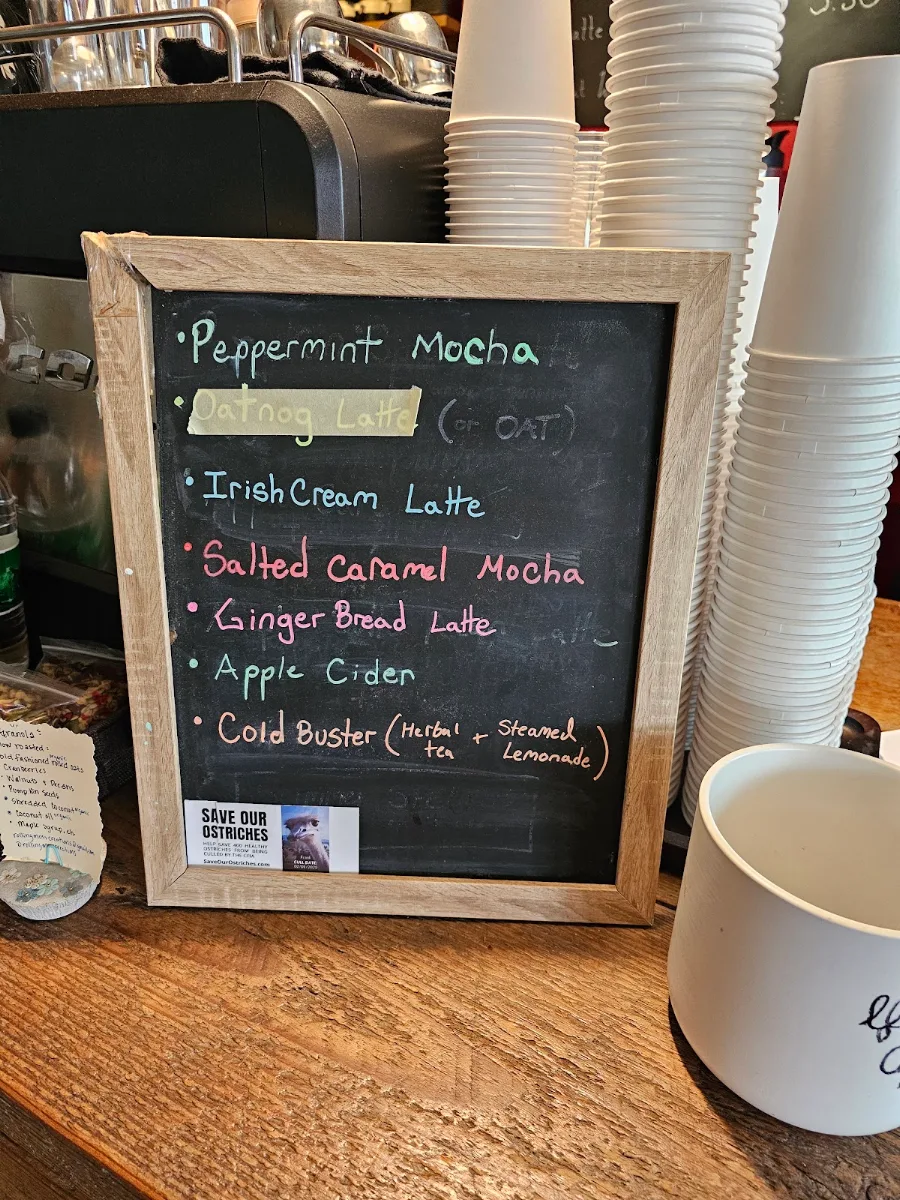 • Peppermint Mocha
• Oatnog Latte (or OAT)
• Irish Cream Latte
• Salted Caramel Mocha
• Ginger Bread Latte
• Apple Cider
• Cold Buster (Herbal tea + Steamed Lemonade)
SAVE OUR
OSTRICHES
HELP SAVE 400 HEALTHY
OSTRICHES FROM BEING
CULLED BY THE CFIA
SaveOurOstriches.com
CULL DATE
granola:
Cranberries
• Walnuts + Pecans
• Pumpkin Seeds
• Shredded Coconut
• Coconut oil
• Maple Syrup